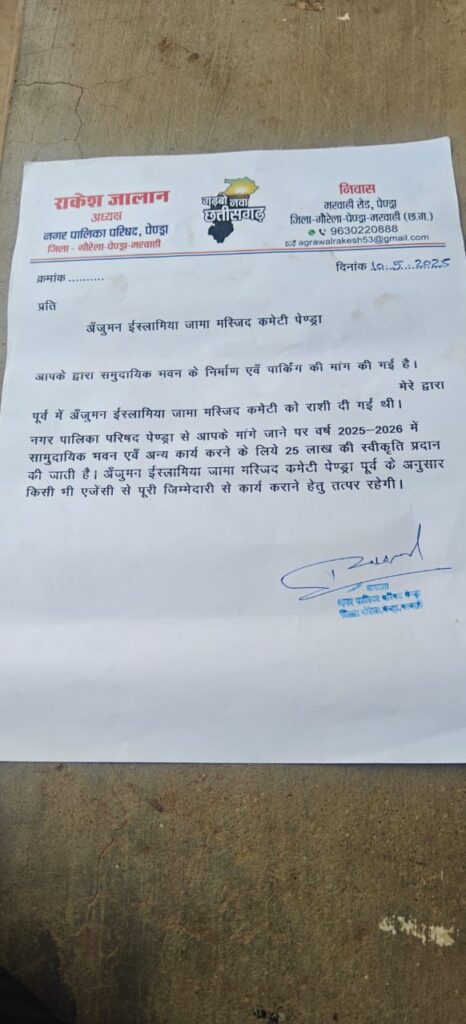 राकेश जालान
अध्यक्ष
नगर पालिका परिषद, पेण्ड्रा
जिला - गौरेला-पेण्ड्रा-मरवाही
गढ़बो नवा
छत्तीसगढ़
निवास
मरवाही रोड, पेण्ड्रा
जिला-गौरेला-पेण्ड्रा-मरवाही (छ.ग.)
9630220888
agrawalrakesh53@gmail.com
क्रमांक ..........
दिनांक 10.5.2025
प्रति
अँजुमन ईस्लामिया जामा मस्जिद कमेटी पेण्ड्रा
आपके द्वारा समुदायिक भवन के निर्माण एवँ पार्किंग की मांग की गई है।
मेरे द्वारा
पूर्व में अँजुमन ईस्लामिया जामा मस्जिद कमेटी को राशी दी गई थी।
नगर पालिका परिषद पेण्ड्रा से आपके मांगे जाने पर वर्ष 2025-2026 में
सामुदायिक भवन एवँ अन्य कार्य करने के लिये 25 लाख की स्वीकृति प्रदान
की जाती है। अँजुमन ईस्लामिया जामा मस्जिद कमेटी पेण्ड्रा पूर्व के अनुसार
किसी भी एजेंसी से पूरी जिम्मेदारी से कार्य कराने हेतु तत्पर रहेगी।
अध्यक्ष
नगर पालिका परिषद पेन्ड्रा